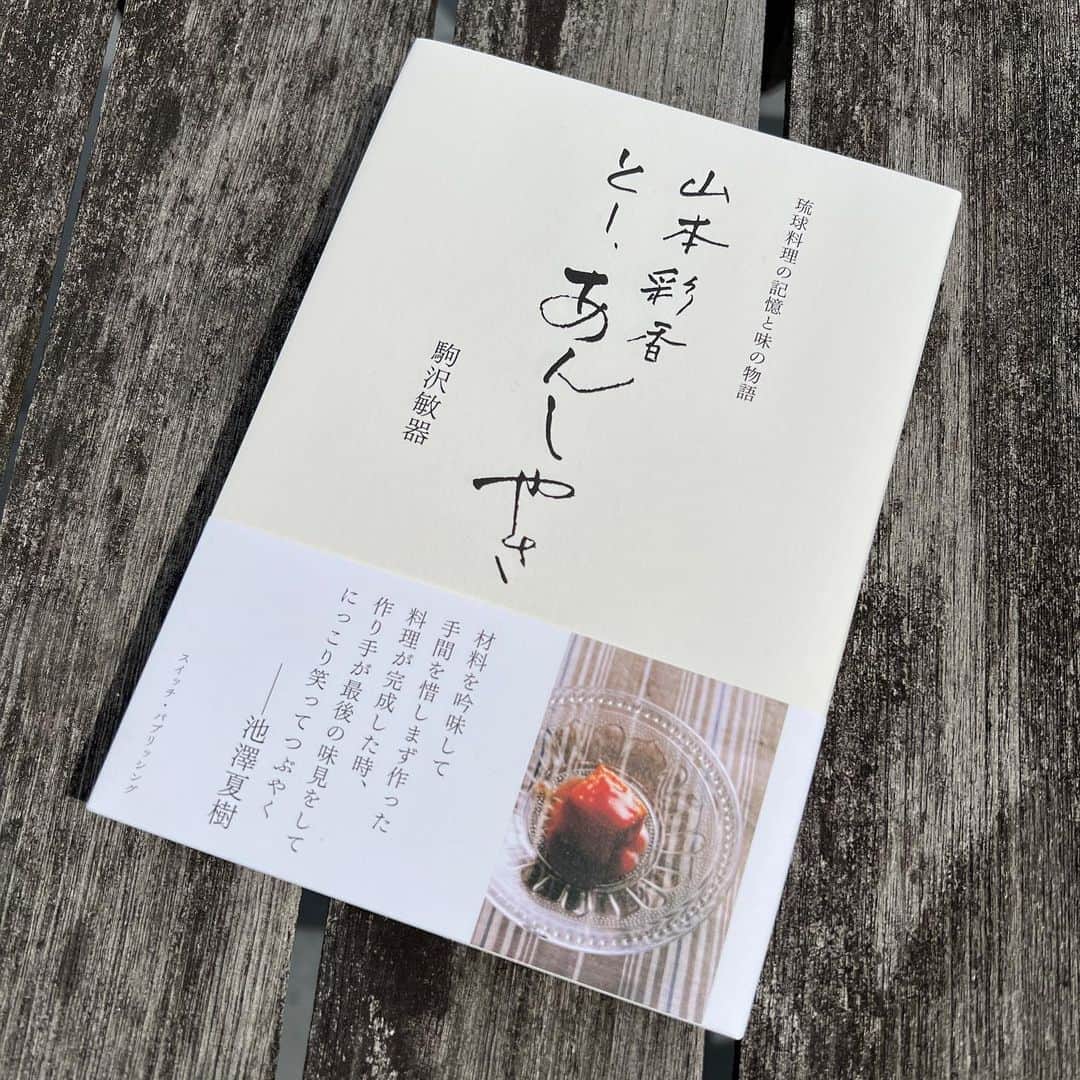 琉球料理の記憶と味の物語
山本彩香
とー、あんしやさ
駒沢敏器
材料を吟味して
手間を惜しまず作った
料理が完成した時、
作り手が最後の味見をして
にっこり笑ってつぶやく
——池澤夏樹
スイッチ・パブリッシング